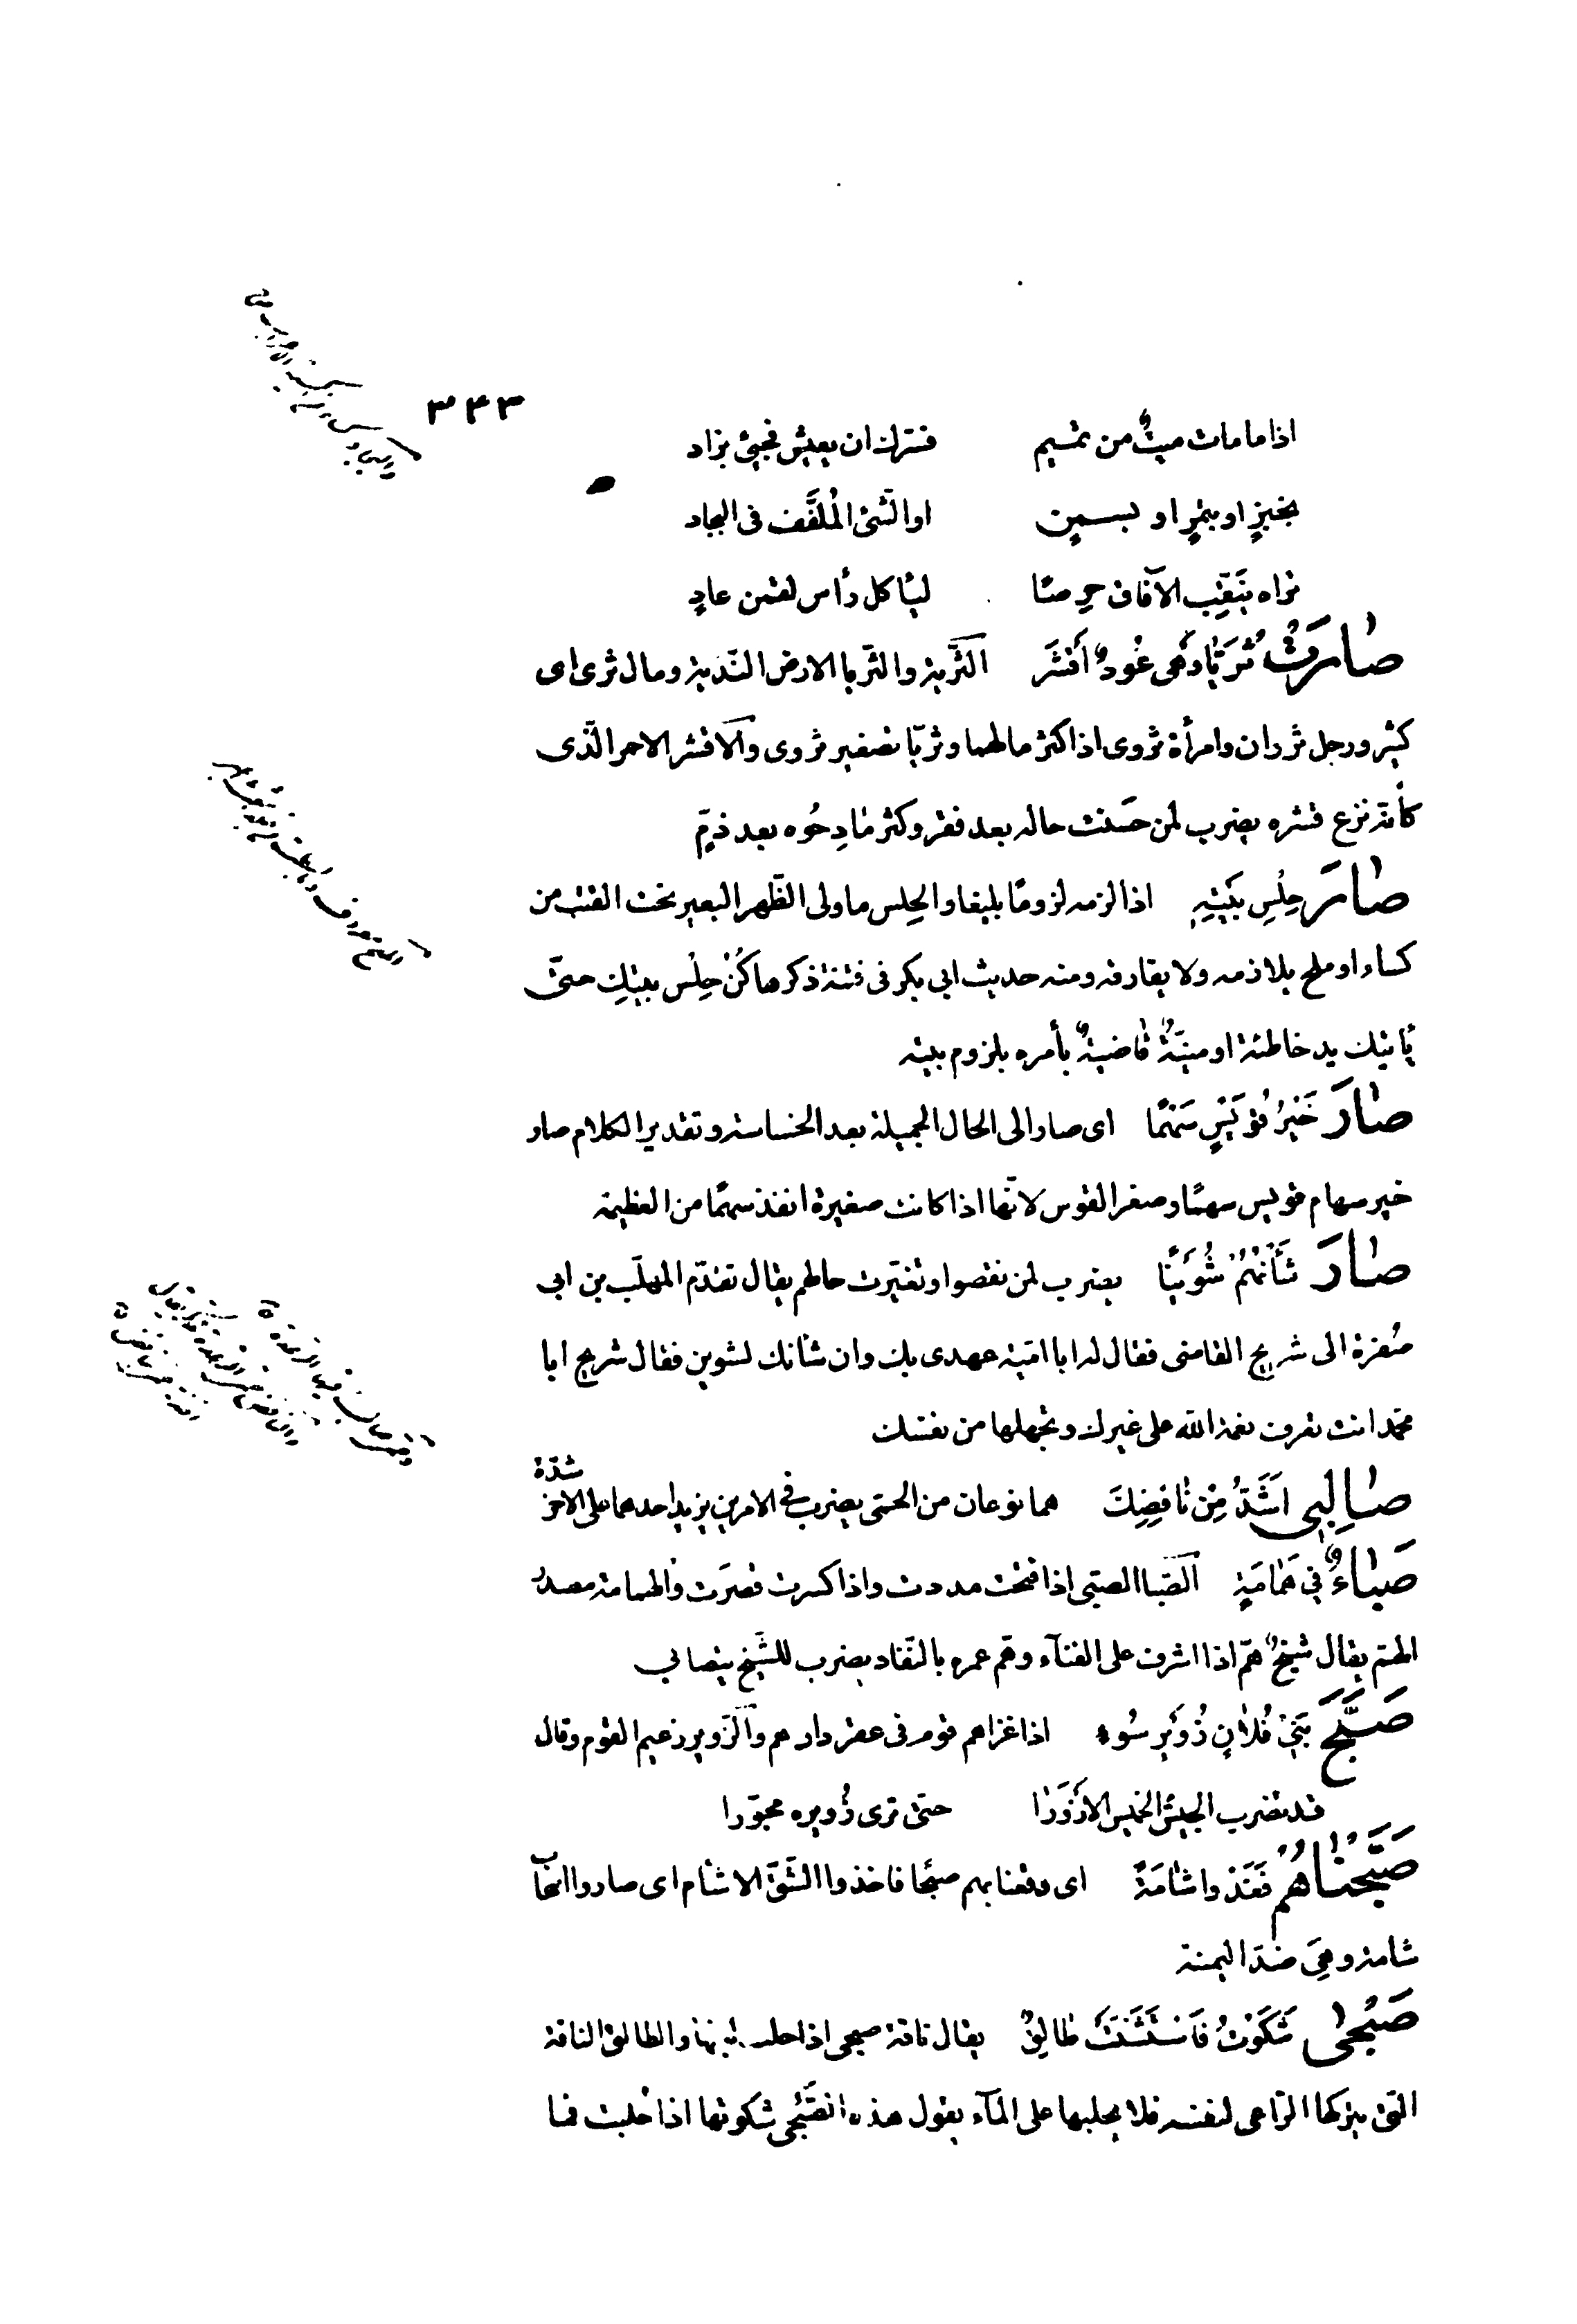 ٣٤٣
اذا ما مات ميتٌ من تميم فسرك ان يعيش فجئ بزاد
بخبزٍ او بتمرٍ او بسمنٍ او الشئ المُلَفَّف فى البجاد
تراه ينَقِّب الآفاق حرِصًا ليأكل رأس لقمن عادٍ
صٰارَتْ ثُرَيّٰا وَهى عُودٌ اَقْشَر الثَّرية والثّريا الارض النّدية ومال ثرى اى
كثير ورجل ثروان وامرأة ثروى اذا كثر مالهما وثريّا تصغير ثروى والاقشر الاحمر الّذى
كأنّه نزع قشره يضرب لمن حسَنت حاله بعد فقر وكثر مٰادِحُوه بعد ذمٍّ
صٰارَ حِلْسِ بَيْتِهِ اذا لزمه لزومًا بليغا والحِلس ما ولى الظّهر البعير تحت القتب من
كساء او ملح يلازمه ولا يفارقه ومنه حديث ابى بكر فى فتنة ذكرها كُنْ حِلْس بيتِك حتىّ
يأتيك يد خاطئة او منيَّةٌ قٰاضيةٌ يأمره بلزوم بيته
صٰارَ خَيْرُ قُوَيْسٍ سَهْمًا اى صار الى الحال الجميلة بعد الخساسة وتقدير الكلام صار
خير سهام قويس سهمًا وصغر القوس لانّها اذا كانت صغيرة انفذ سهمًا من العظيمة
صٰارَ شَأْنُهُمْ شُوَيْنًا يضرب لمن نقصوا وتغيّرت حالهم يقال تقدّم المهلّب بن ابى
صُفرة الى شريح القاضى فقال له ابا اميّة عهدى بك وان شأنك لشوين فقال شريح ابا
محمّد انت تعرف نعمة اللّه على غيرك وتجهلها من نفسك
صٰالِبِى اَشَدُّ مِنْ نٰافِضِكَ هما نوعان من الحمّى يضرب فى الامرين يزيد احدهما على الاخر شدّة
صَبٰاءٌ فِى هَمٰامَةٍ الصَّبا الصبىّ اذا فتحت مددت واذا كسرت قصرَت والهمامة مصدر
الهتم يقال شيخٌ همّ اذا اشرف على الفنآء وهّم عمره بالنّفاد يضرب للشّيخ يتصابى
صَبَّحَ بَنِىْ فُلٰانٍ زُوَيْرِ سُوءٍ اذا غزاهم قومه فى عقر دارهم والزّوير زعيم القوم وقال
قد نضرب الجيش الخميس الازْوَرٰا حتىٰ ترى زُويره مجوّرا
صَبَّحْنٰاهُمْ فَغَدَوا شٰامَةً اى وقعنا بهم صبحًا فاخذوا الشّقّ الاشأم اى صاروا اصحاب
شأمة وهِىَ ضدّ اليمنة
صَبْحٰى شَكَوْتُ فَاسْتَشَنَّتْ طٰالِقٌ يقال ناقة صبحى اذا حلب لبنها والطالق الناقة
التى يتركها الرّاعى لنفسه فلا يحلبها على المآء يقول هذه الصَّبْحى شكوتها اذا حُلبت فما